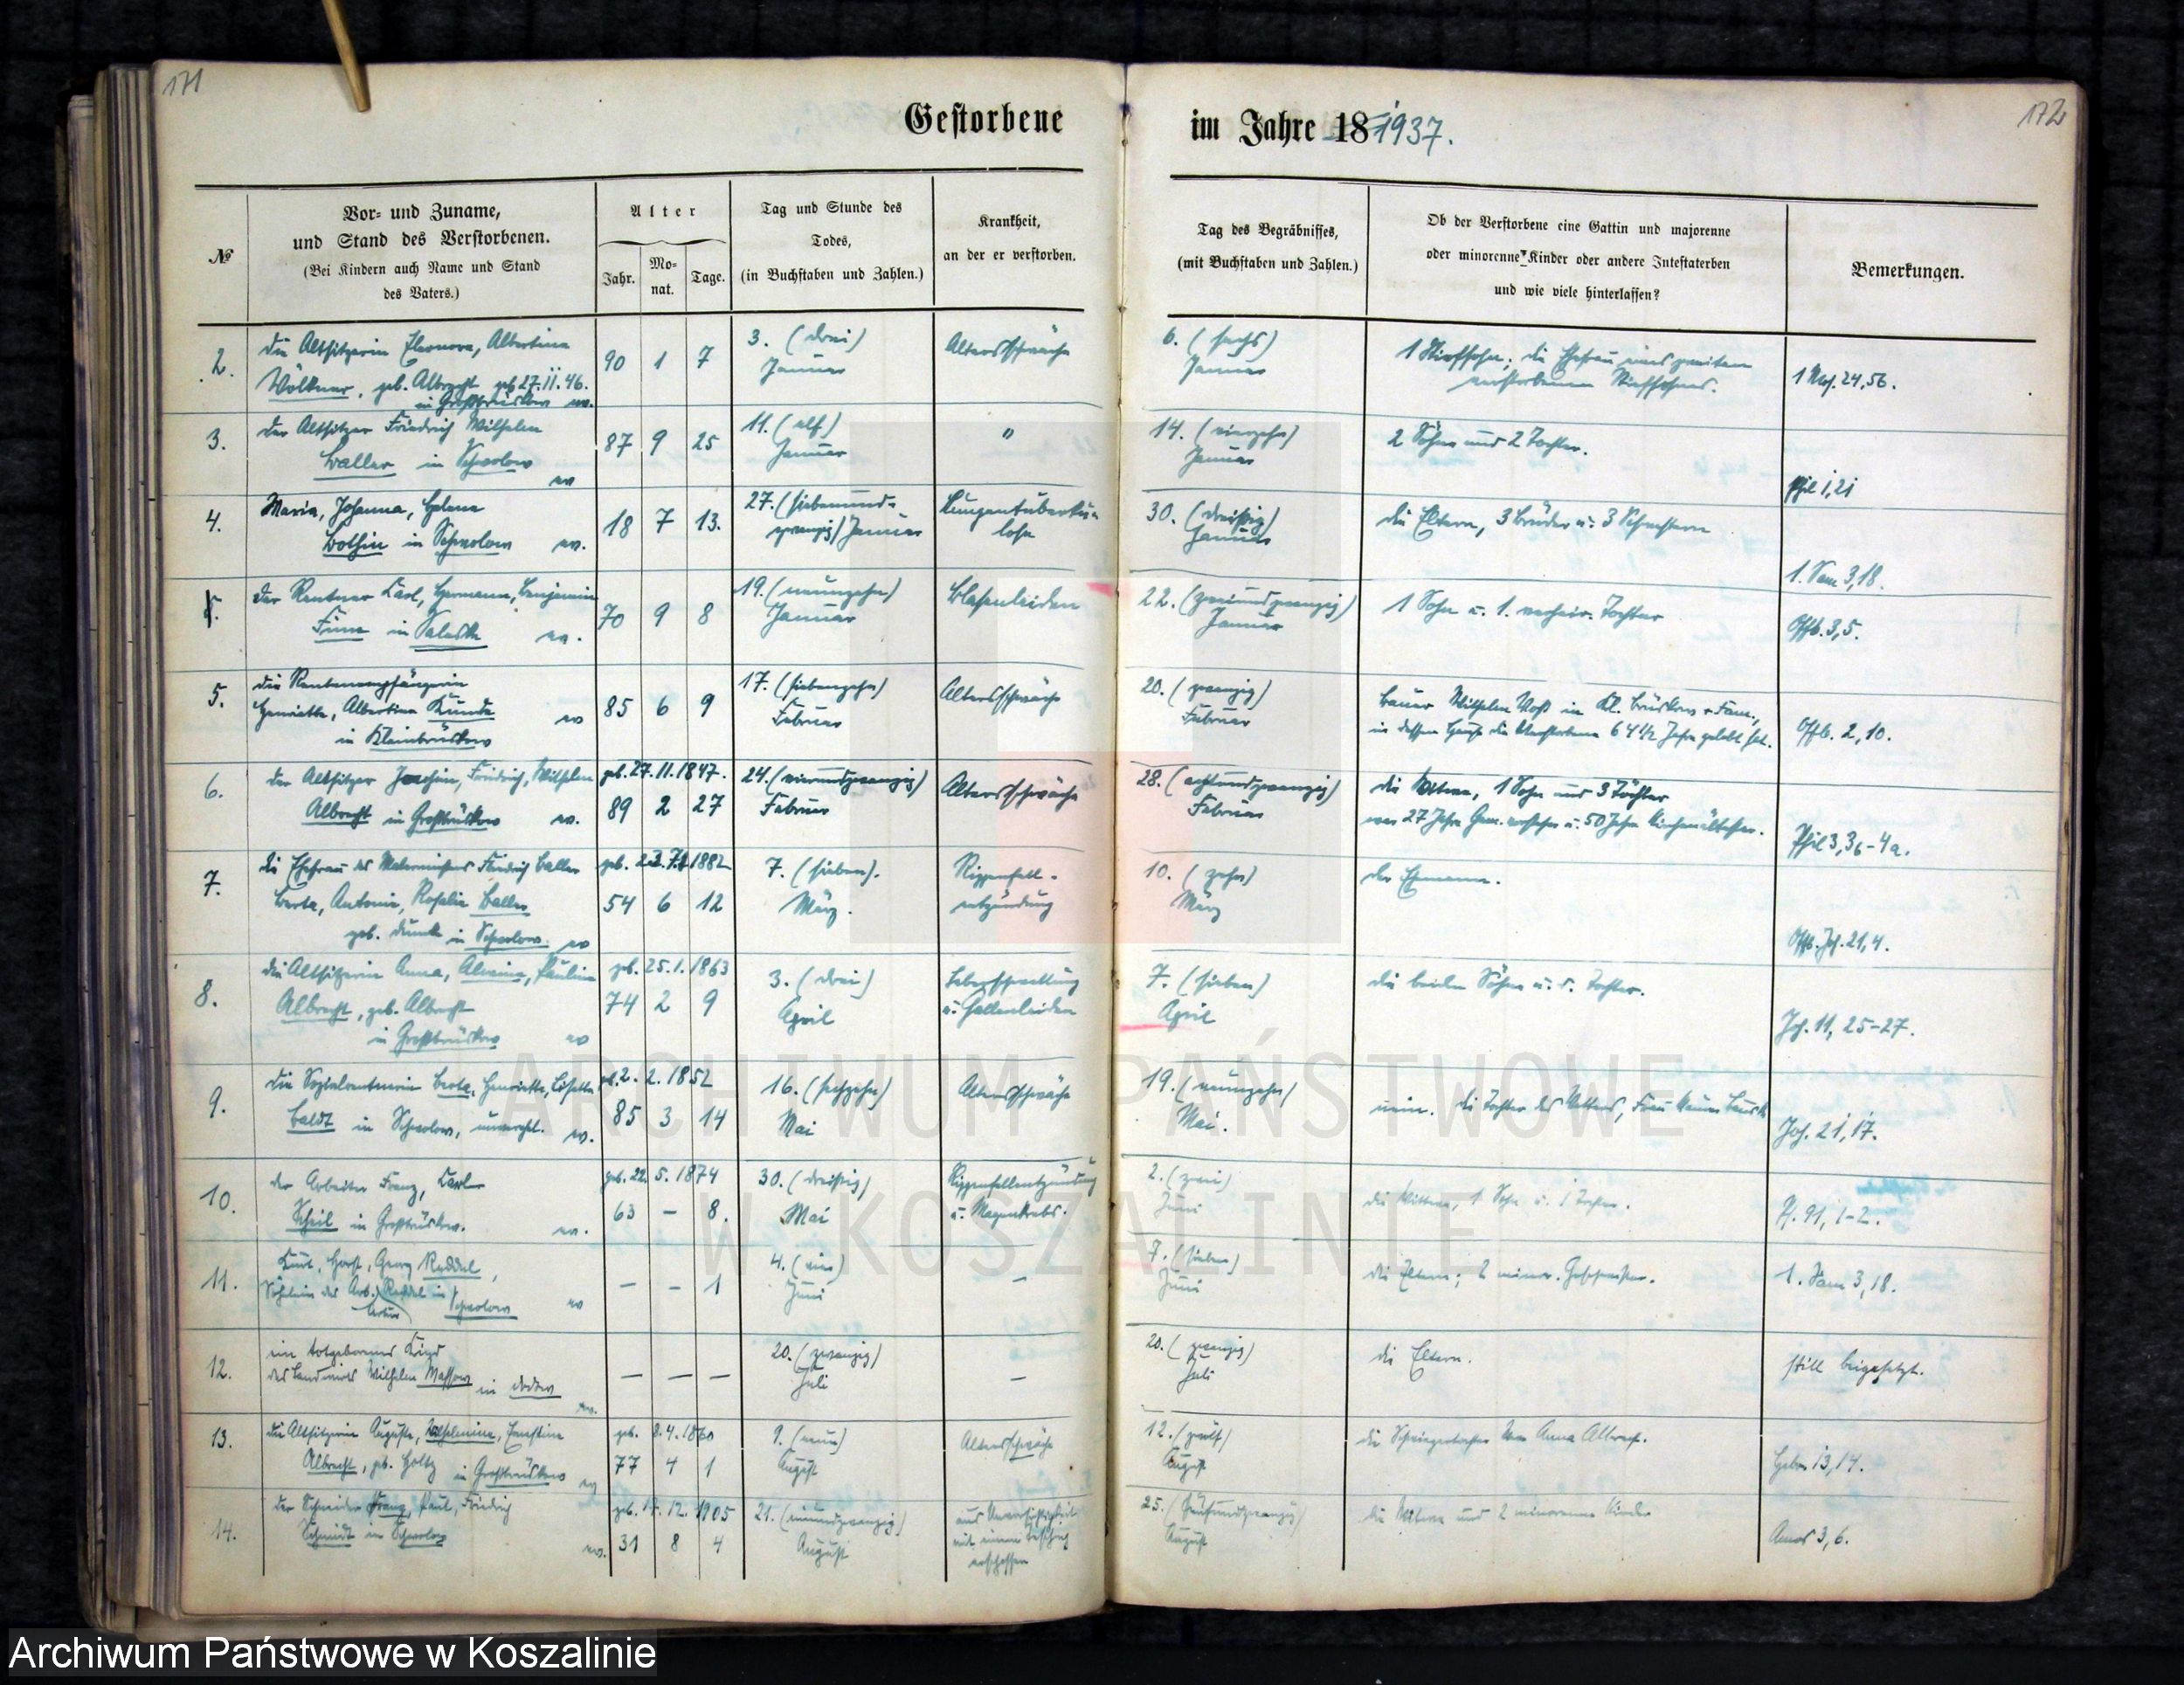 171
172
Gestorbene im Jahre 18 1937.
№
Vor- und Zuname,
und Stand des Verstorbenen.
(Bei Kindern auch Name und Stand
des Vaters.)
Alter
Jahr.
Mo-
nat.
Tage.
Tag und Stunde des
Todes,
(in Buchstaben und Zahlen.)
Krankheit,
an der er verstorben.
Tag des Begräbnisses,
(mit Buchstaben und Zahlen.)
Ob der Verstorbene eine Gattin und majorenne
oder minorenne Kinder oder andere Intestaterben
und wie viele hinterlassen?
Bemerkungen.
2.
die Altsitzerin Eleonore, Albertine
Völkner, geb. Albrecht geb 27.11.46.
in Großbrüskow ev.
90 1 7
3. (drei)
Januar
Altersschwäche
6. (sechs)
Januar
1 Stiefsohn; die Ehefrau eines zweiten
verstorbenen Stiefsohnes.
1 Mos. 24,56.
3.
der Altsitzer Friedrich Wilhelm
Baller in
ev
87 9 25
11. (elf)
Januar
"
14. (vierzehn)
Januar
2 Söhne und 2 Töchter.
Phil 1,21
4.
Maria, Johanna, Helene
in
ev.
18 7 13.
27. (siebenund-
zwanzig) Januar
Lungentuberku-
lose
30. (dreißig)
Januar
die Eltern, 3 Brüder u. 3 Schwestern
1. Sam 3,18.
der Rentner Karl, Hermann, Benjamin
in
ev.
70 9 8
19. (neunzehn)
Januar
Blasenleiden
22. (zweiundzwanzig)
Januar
1 Sohn u. 1. verheir. Tochter
Offb. 3,5.
5.
die Rentenempfängerin
Henriette, Albertine Kunde
in Kleinbrüskow
ev
85 6 9
17. (siebenzehn)
Februar
Altersschwäche
20. (zwanzig)
Februar
Bauer Wilhelm Voß in Kl. Brüskow + Fam.,
in dessen Hause die Verstorbene 64 1/2 Jahre gelebt hat.
Offb. 2,10.
6.
der Altsitzer Joachim, Friedrich, Wilhelm
Albrecht in Großbrüskow
ev.
geb. 27.11.1847.
89 2 27
24. (vierundzwanzig)
Februar
Altersschwäche
28. (achtundzwanzig)
Februar
die Witwe, 1 Sohn und 3 Töchter
war 27 Jahre Gem. vorsteher u. 50 Jahre Kirchenältester.
Phil 3,3b-4a.
7.
die Ehefrau des Malermeisters Friedrich Baller
Berta, Antonie, Rosalie Baller
geb. in
ev
1882
54 6 12
7. (sieben).
März.
Rippenfell-
entzündung
10. (zehn)
März
der Ehemann.
Offb. Joh. 21,4.
8.
die Altsitzerin Anna, Alwine, Pauline
Albrecht, geb. Albrecht
in Großbrüskow
ev
geb. 25.1.1863
74 2 9
3. (drei)
April
Leberschwellung
u. Gallenleiden
7. (sieben)
April
die beiden Söhne u. d. Tochter.
Joh. 11, 25-27.
9.
die Sozialrentnerin Berta, Henriette, Lisette
Baldt in
ev.
2. 2. 1852
85 3 14
16. (sechzehn)
Mai
Altersschwäche
19. (neunzehn)
Mai.
nein. die Tochter des Vetters, Frau
Joh. 21,17.
10.
der Arbeiter Franz, Karl
Scheil in Großbrüskow.
ev.
geb. 22. 5. 1874
63 – 8.
30. (dreißig)
Mai
Rippenfellentzündung
u. Magenkrebs.
2. (zwei)
Juni
die Witwe, 1 Sohn u. 1 Tochter.
Ps. 91, 1-2.
11.
Kurt, Horst, Georg Raddel,
Söhnlein des Arb. Raddel in
Artur
ev
– – 1
4. (vier)
Juni
–
7. (sieben)
Juni
die Eltern; 2 minor. Geschwister.
1. Sam 3,18.
12.
ein totgeborenes Kind
des Landwirts Wilhelm Massow in
ev.
– – –
20. (zwanzig)
Juli
–
20. (zwanzig)
Juli
die Eltern.
still beigesetzt.
13.
die Altsitzerin Auguste, Wilhelmine, Ernstine
Albrecht, geb. Holtz in Großbrüskow
ev
geb. 8.4.1860
77 4 1
9. (neun)
August
Altersschwäche
12. (zwölf)
August
die Schwiegertochter Anna Albrecht.
Hebr 13,14.
14.
der Schneider Franz, Paul, Friedrich
Schmidt in
ev.
geb. 17. 12. 1905
31 8 4
21. (einundzwanzig)
August
aus Unvorsichtigkeit
mit einem
erschossen
25. (fünfundzwanzig)
August
die Witwe und 2 minorenne Kinder
Amos 3,6.
ARCHIWUM PAŃSTWOWE
W KOSZALINIE
Archiwum Państwowe w Koszalinie